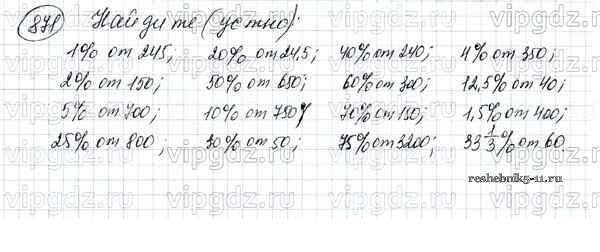 871 Найдите (устно):
1% от 245; 20% от 24,5; 40% от 240; 4% от 350;
2% от 150; 50% от 650; 60% от 300; 12,5% от 40;
5% от 700; 10% от 750; 70% от 150; 1,5% от 400;
25% от 800; 30% от 50; 75% от 3200; 33 1/3% от 60.
reshebnik5-11.ru